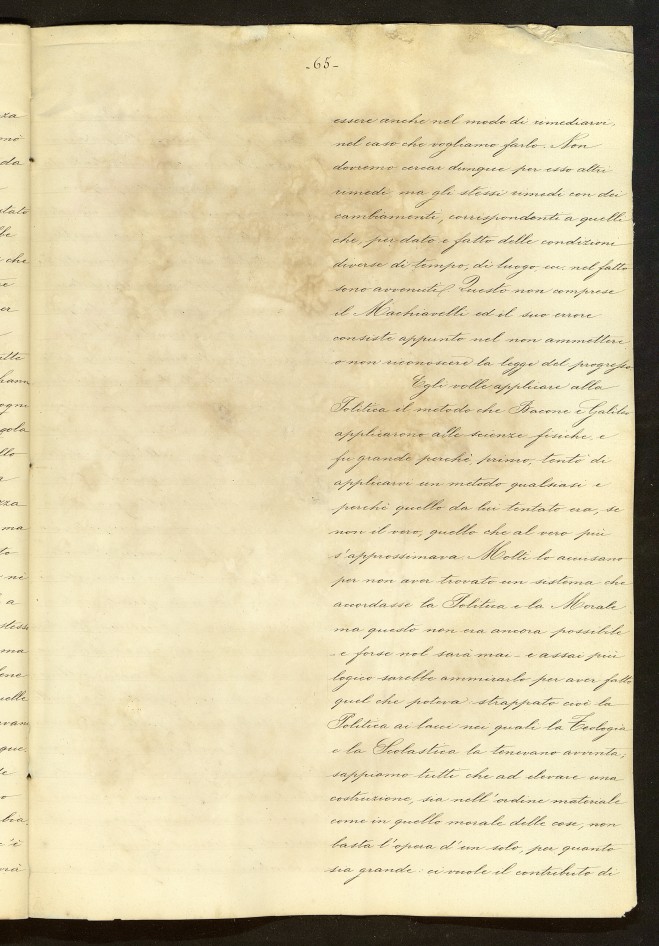 -65-
essere anche nel modo di rimediarvi,
nel caso che vogliamo farlo. Non
dovremo cercar dunque per esso altri
rimedi ma gli stessi rimedi con dei
cambiamenti, corrispondenti a quelli
che, per dato e fatto delle condizioni
diverse di tempo, di luogo, ecc. nel fatto
sono avvenuti. Questo non comprese
il Machiavelli ed il suo errore
consiste appunto nel non ammettere
o non riconoscere la legge del progresso.
Egli volle applicare alla
Politica il metodo che Bacone e Galileo
applicarono alle scienze fisiche, e
fu grande perchè, primo, tentò di
applicarvi un metodo qualsiasi e
perchè quello da lui tentato era, se
non il vero, quello che al vero più
s'approssimava. Molti lo accusano
per non aver trovato un sistema che
accordasse la Politica e la Morale
ma questo non era ancora possibile
- e forse nol sarà mai - e assai più
logico sarebbe ammirarlo per aver fatto
quel che poteva strappato cioè la
Politica ai lacci nei quali la Teologia
e la Scolastica la tenevano avvinta;
sappiamo tutti che ad elevare una
costruzione, sia nell'ordine materiale
come in quello morale delle cose, non
basta l'opera d'un solo, per quanto
sia grande: ci vuole il contributo di